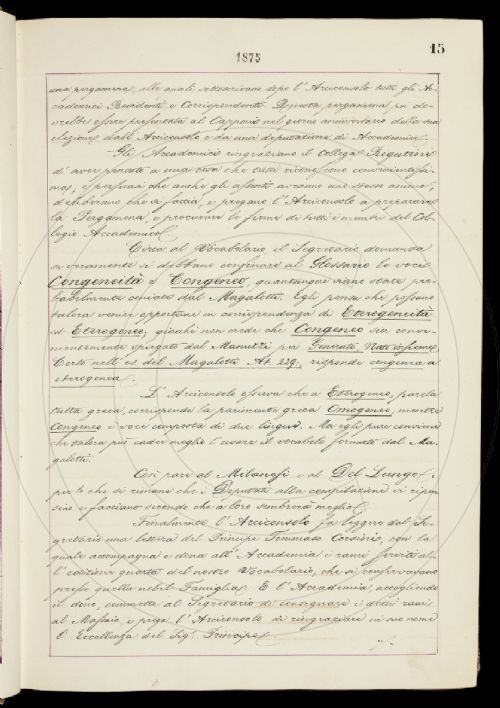 15
1875
una pergamena, alla quale sottoscrivano dopo l'Arciconsolo tutti gli Ac-
cademici Residenti e Corrispondenti. Questa pergamena poi do-
vrebbe essere presentata al Capponi nel giorno anniversario della sua
elezione dall'Arciconsolo e da una deputazione di Accademici.
Gli Accademici ringraziano il collega Rigutini
d'aver pensato a una cosa che tutti ricono
e persuasi che anche gli assenti avranno uno stesso animo,
deliberano che si faccia, e pregano l'Arciconsolo a preparare
la Pergamena, e procurare le firme di tutti i membri del Col-
legio Accademico.
Circa al Vocabolario il Segretario domanda
se veramente si debbano confinare al Glossario le voci
Congeneità e Congeneo, quantunque siano state pro-
babilmente coniate dal Magalotti. Egli pensa che possano
talora venire opportune in corrispondenza di Eterogeneità
ed Eterogeneo; giacchè non crede che Congeneo sia conve-
nientemente spiegato dal Manuzzi per Generato, Nato insieme.
Certo nell'es. del Magalotti At. 229, risponde congenea a
eterogenea.
L'Arciconsolo osserva che a Eterogeneo, parola
tutta greca, corrisponde la parimente greca Omogeneo, mentre
Congeneo è voce composta di due lingue. Ma egli pure conviene
che talora può cader meglio l'usare il vocabolo formato dal Ma-
galotti.
Così pare al Milanesi e al Del Lungo;
per lo che si rimane che i Deputati alla compilazione vi ripen-
sino e facciano secondo che a loro sembrerà meglio.
Finalmente l'Arciconsolo fa leggere dal Se-
gretario una lettera del Principe Tommaso Corsini, con la
quale accompagna e dona all'Accademia i rami serviti al-
l'edizione quarta del nostro Vocabolario, che si conservavano
presso quella nobil Famiglia. E l'Accademia, accogliendo
il dono, commette al Segretario di consegnare i detti rami
al Massaio, e prega l'Arciconsolo di ringraziare in suo nome
l'Eccellenza del Sig. Principe.